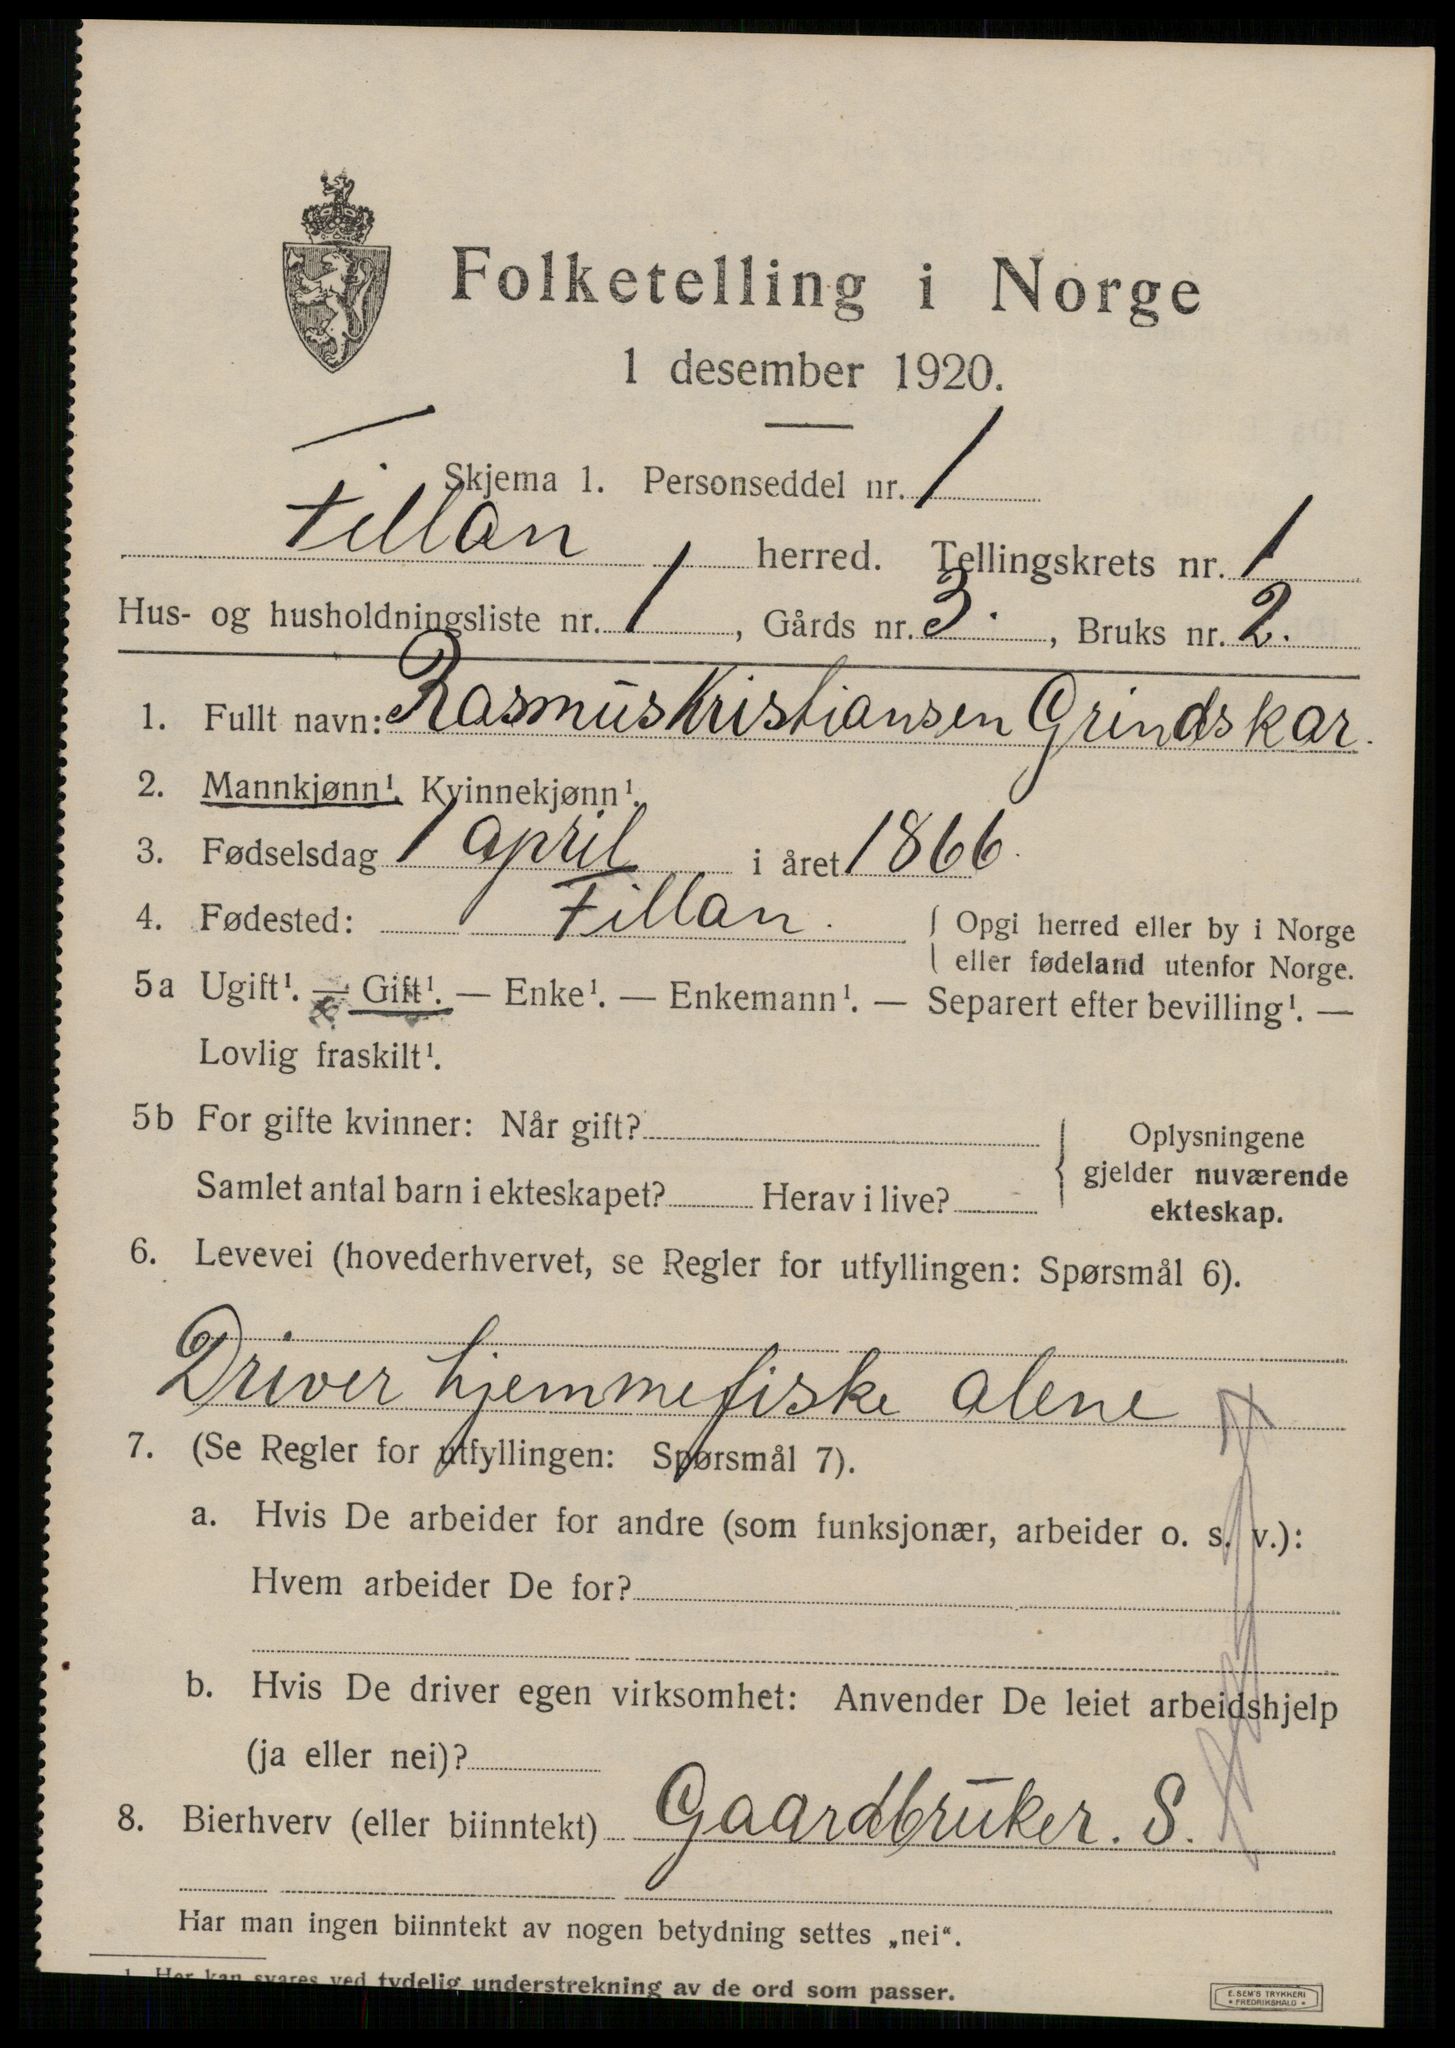 Folketelling i Norge
1 desember 1920.
Skjema 1. Personseddel nr. 1
Fillan herred. Tellingskrets nr. 1
Hus- og husholdningsliste nr. 1, Gårds nr. 3., Bruks nr. 2.
1. Fullt navn: Rasmus Kristiansen Grindskar.
2. Mannkjønn¹. Kvinnekjønn¹.
3. Fødselsdag 1 april i året 1866.
4. Fødested: Fillan. { Opgi herred eller by i Norge
eller fødeland utenfor Norge.
5a Ugift¹. — Gift¹. — Enke¹. — Enkemann¹. — Separert efter bevilling¹. —
Lovlig fraskilt¹.
5b For gifte kvinner: Når gift? { Oplysningene
gjelder nuværende
Samlet antal barn i ekteskapet? Herav i live? ekteskap.
6. Levevei (hovederhvervet, se Regler for utfyllingen: Spørsmål 6).
Driver hjemmefiske alene
7. (Se Regler for utfyllingen: Spørsmål 7).
a. Hvis De arbeider for andre (som funksjonær, arbeider o. s. v.):
Hvem arbeider De for?
b. Hvis De driver egen virksomhet: Anvender De leiet arbeidshjelp
(ja eller nei)?
8. Bierhverv (eller biinntekt) Gaardbruker. S.
Har man ingen biinntekt av nogen betydning settes „nei“.
1 Her kan svares ved tydelig understrekning av de ord som passer.
E. SEM'S TRYKKERI
* FREDRIKSHALD *